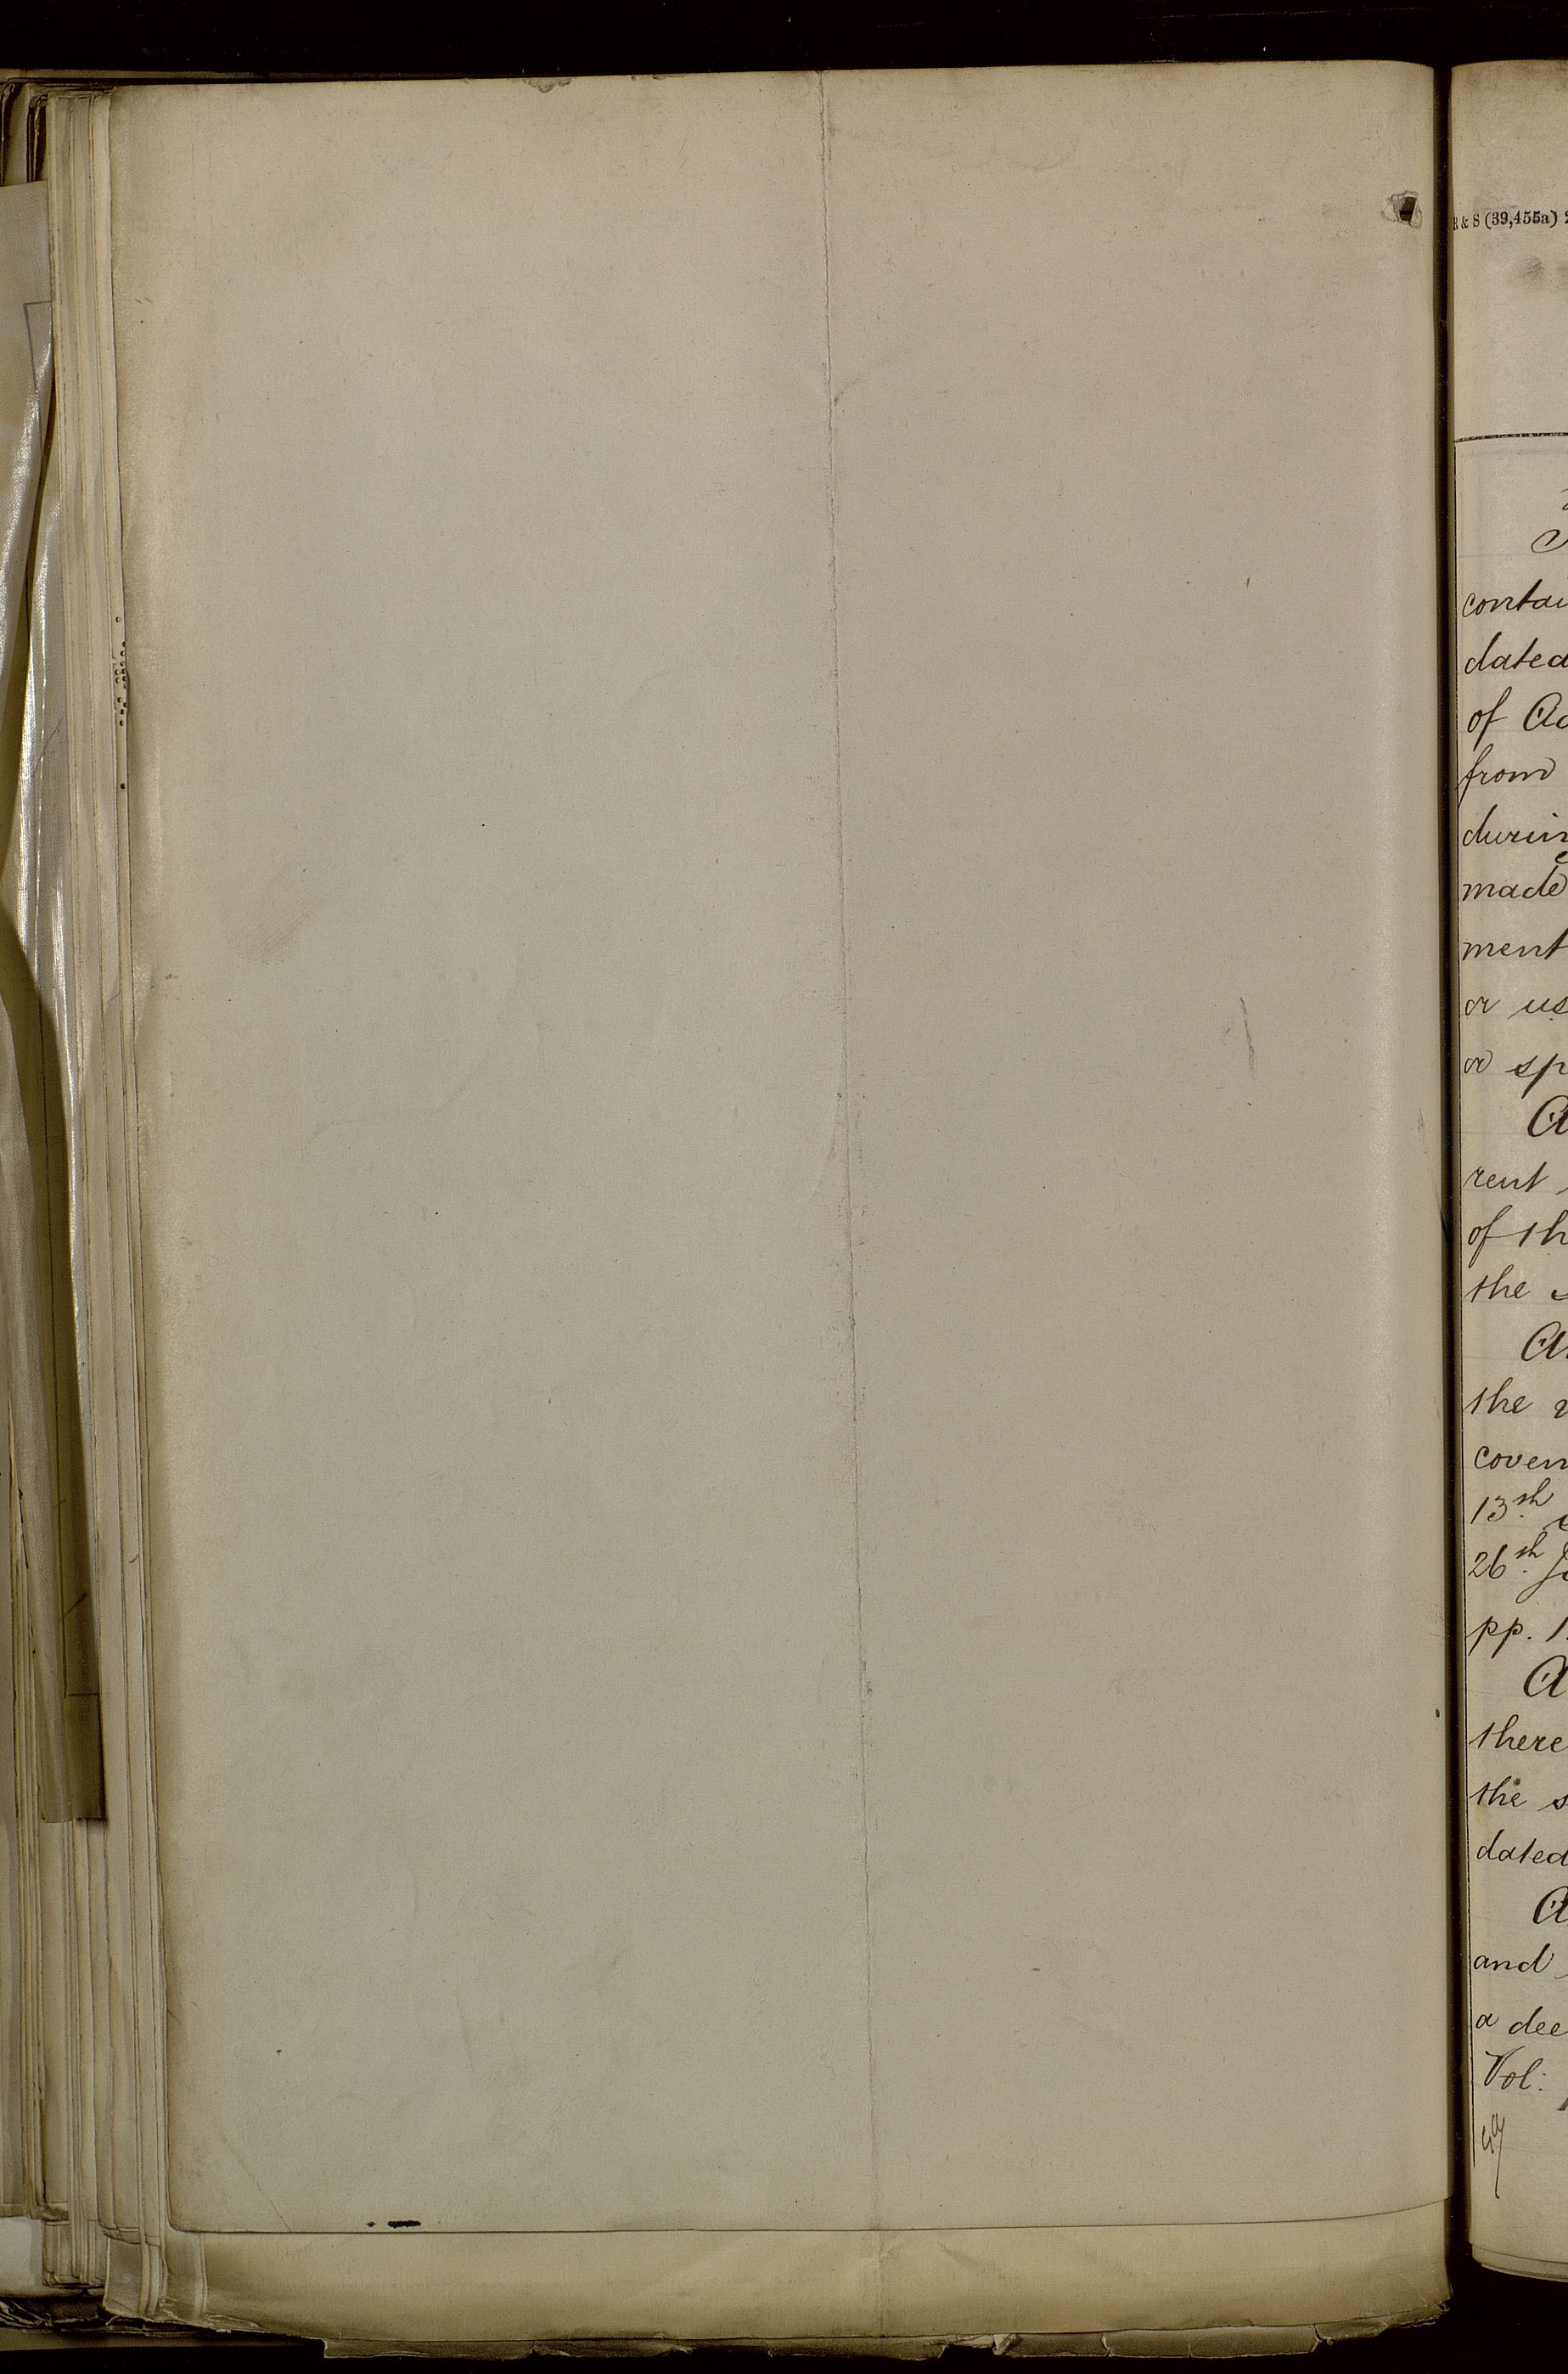 R & S (39,455a)
contai
dated
of Ac
from
durin
made
ment
or us
or sp
A
rent
of th
the
An
the
coven
13th
26th
pp. 1
A
there
the s
dated
A
and
a dee
Vol: